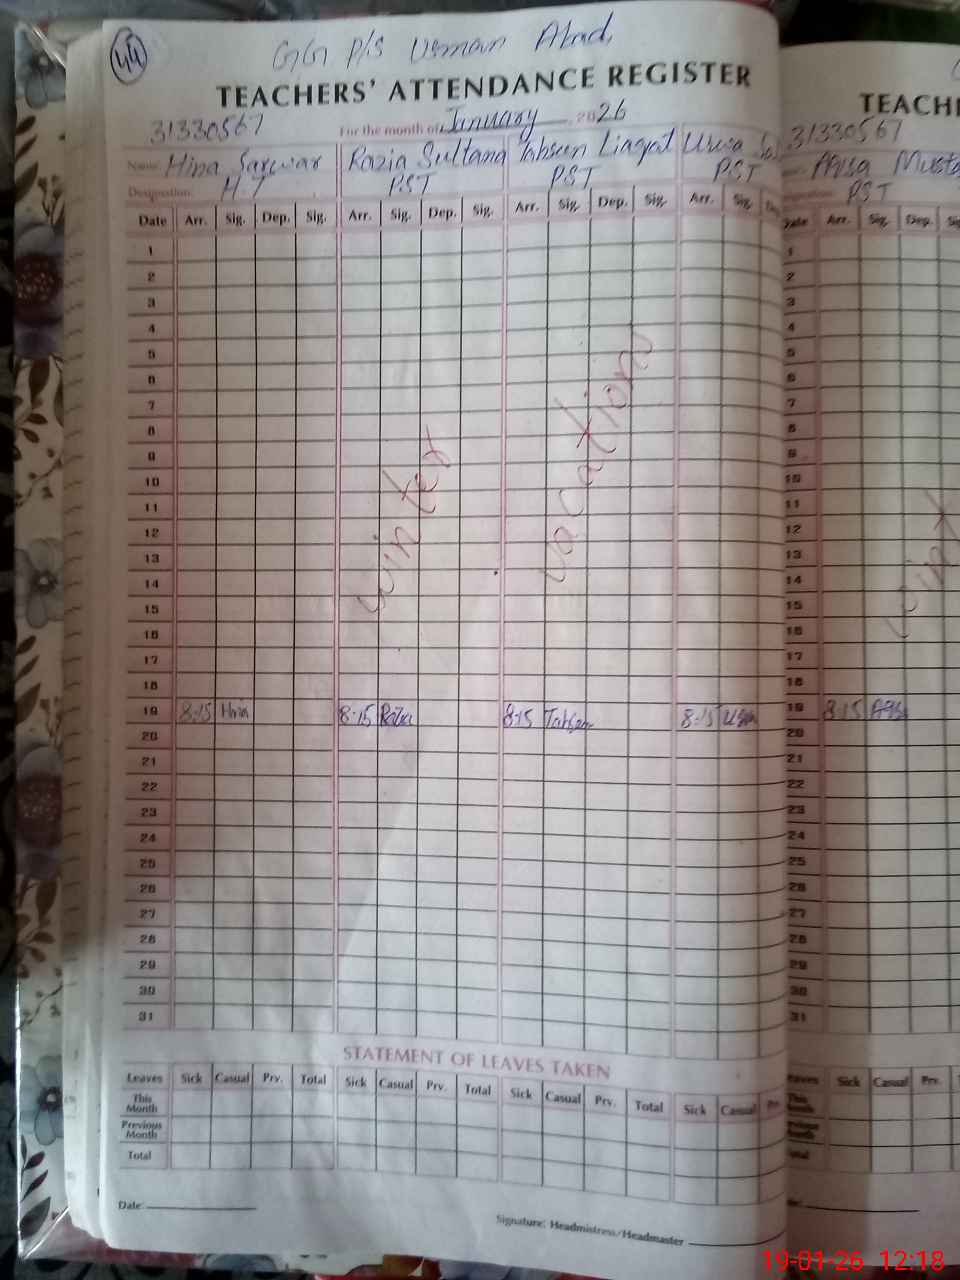 44
GG P/S Usman Abad,
TEACHERS' ATTENDANCE REGISTER
31330567 For the month of January 2026
Name: Hina Sarwar Razia Sultana Tabseen Liaqat Urwa
Designation: H.T PST PST PST
Date Arr. Sig. Dep. Sig. Arr. Sig. Dep. Sig. Arr. Sig. Dep. Sig. Arr. Sig. Dep.
1
2
3
4
5
6
7
8
9
10
11
12
13
14
15
16
17
18
winter vacation
19 8:15 Hina 8:15 Razia 8:15 Tabseen 8:15 Urwa
20
21
22
23
24
25
26
27
28
29
30
31
STATEMENT OF LEAVES TAKEN
Leaves Sick Casual Prv. Total Sick Casual Prv. Total Sick Casual Prv. Total Sick Casual Prv.
This Month
Previous Month
Total
Date:
Signature: Headmistress/Headmaster
TEACH
31330567
Aqsa Musta
PST
Date Arr. Sig. Dep. Sig
1
2
3
4
5
6
7
8
9
10
11
12
13
14
15
16
17
18
wint
19 8:15 Aqsa
20
21
22
23
24
25
26
27
28
29
30
31
Leaves Sick Casual Prv.
This Month
Previous Month
Total
19-01-26 12:18